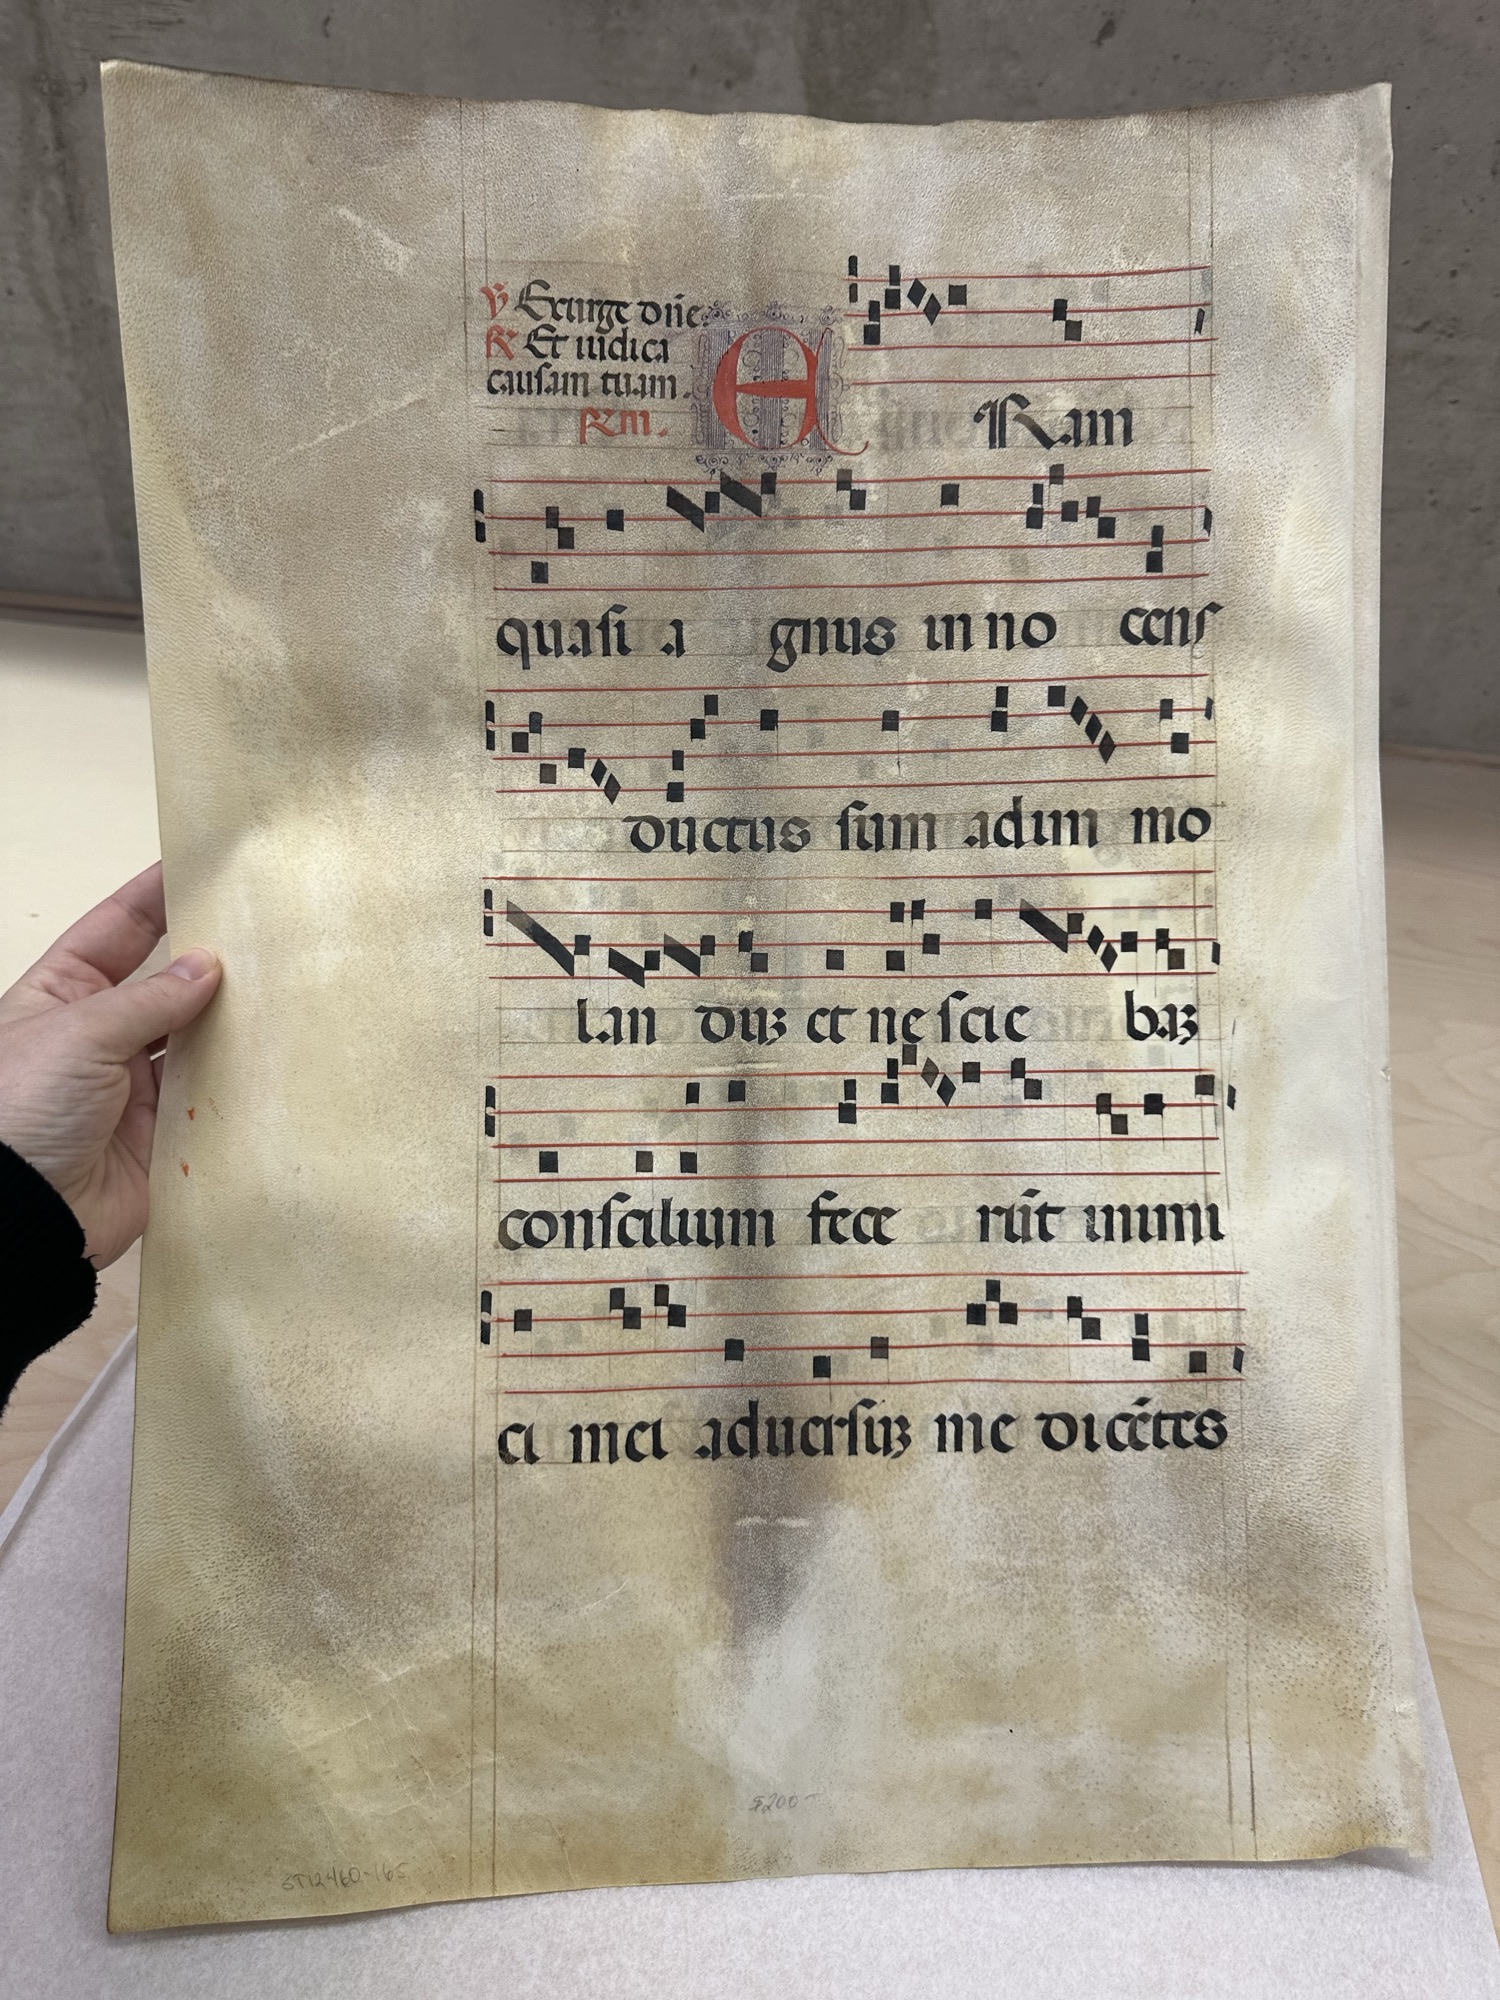 ℣ Exurge dn̄e.
℟ Et iudica
causam tuam.
℟m.
E Ram
quasi a gnus in no cens
ductus sum ad im mo
lan duꝫ et ne scie baꝫ
conscilium fece rūt inimi
ci mei aduersuꝫ me dicētes
$200-
ST12460-165